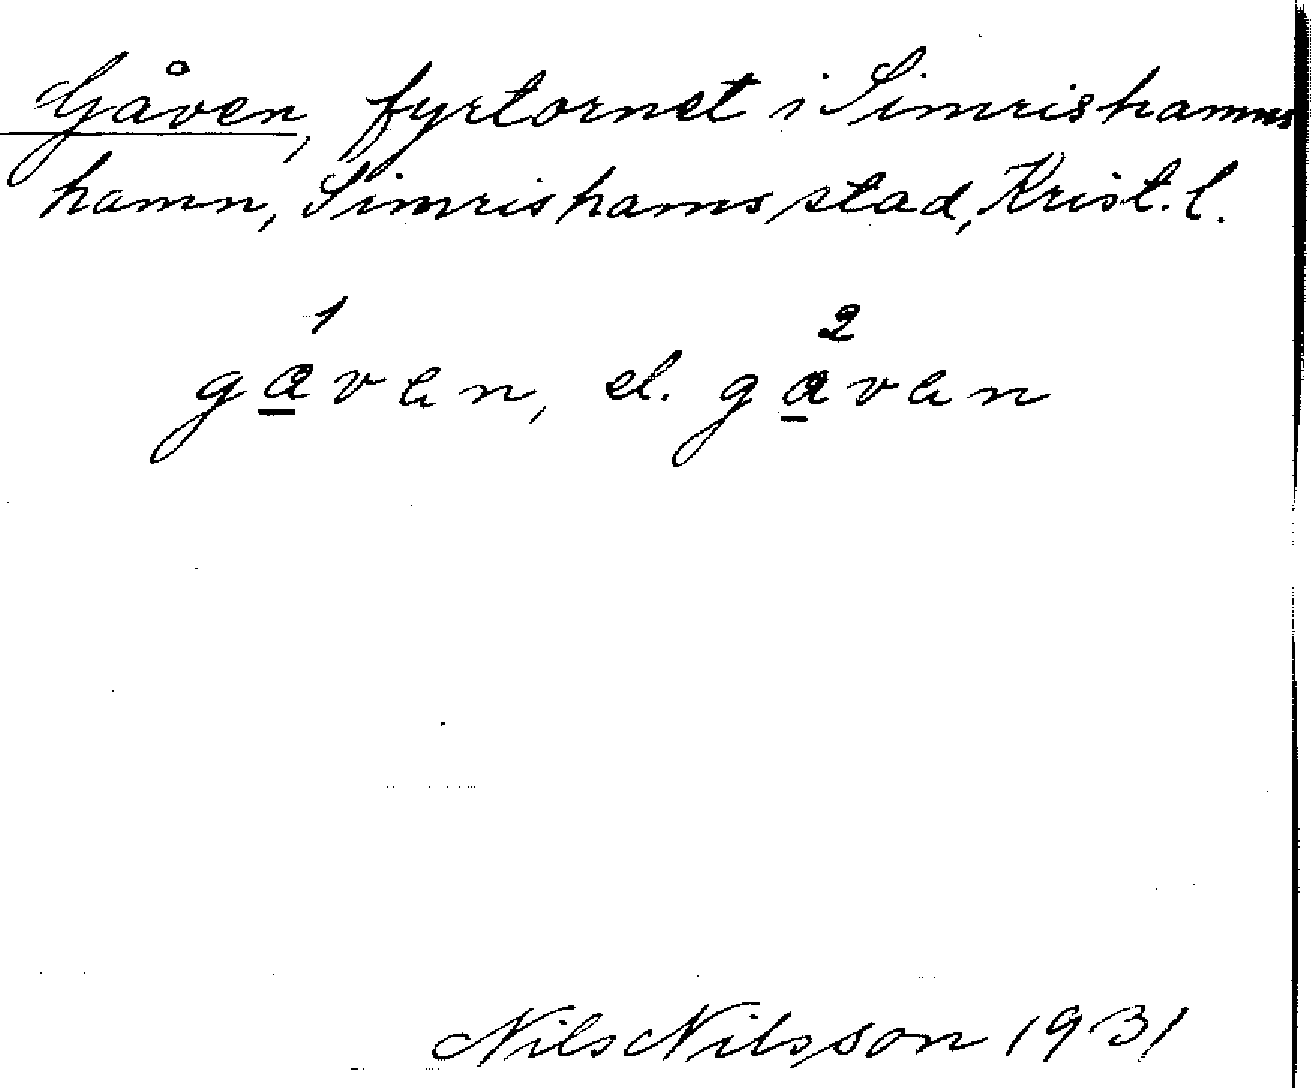 Gåven, fyrtornet i Simrishamns
hamn, Simrishams stad, Krist. l.
1 2
gåvan, el. gåvan
Nils Nilsson 1931